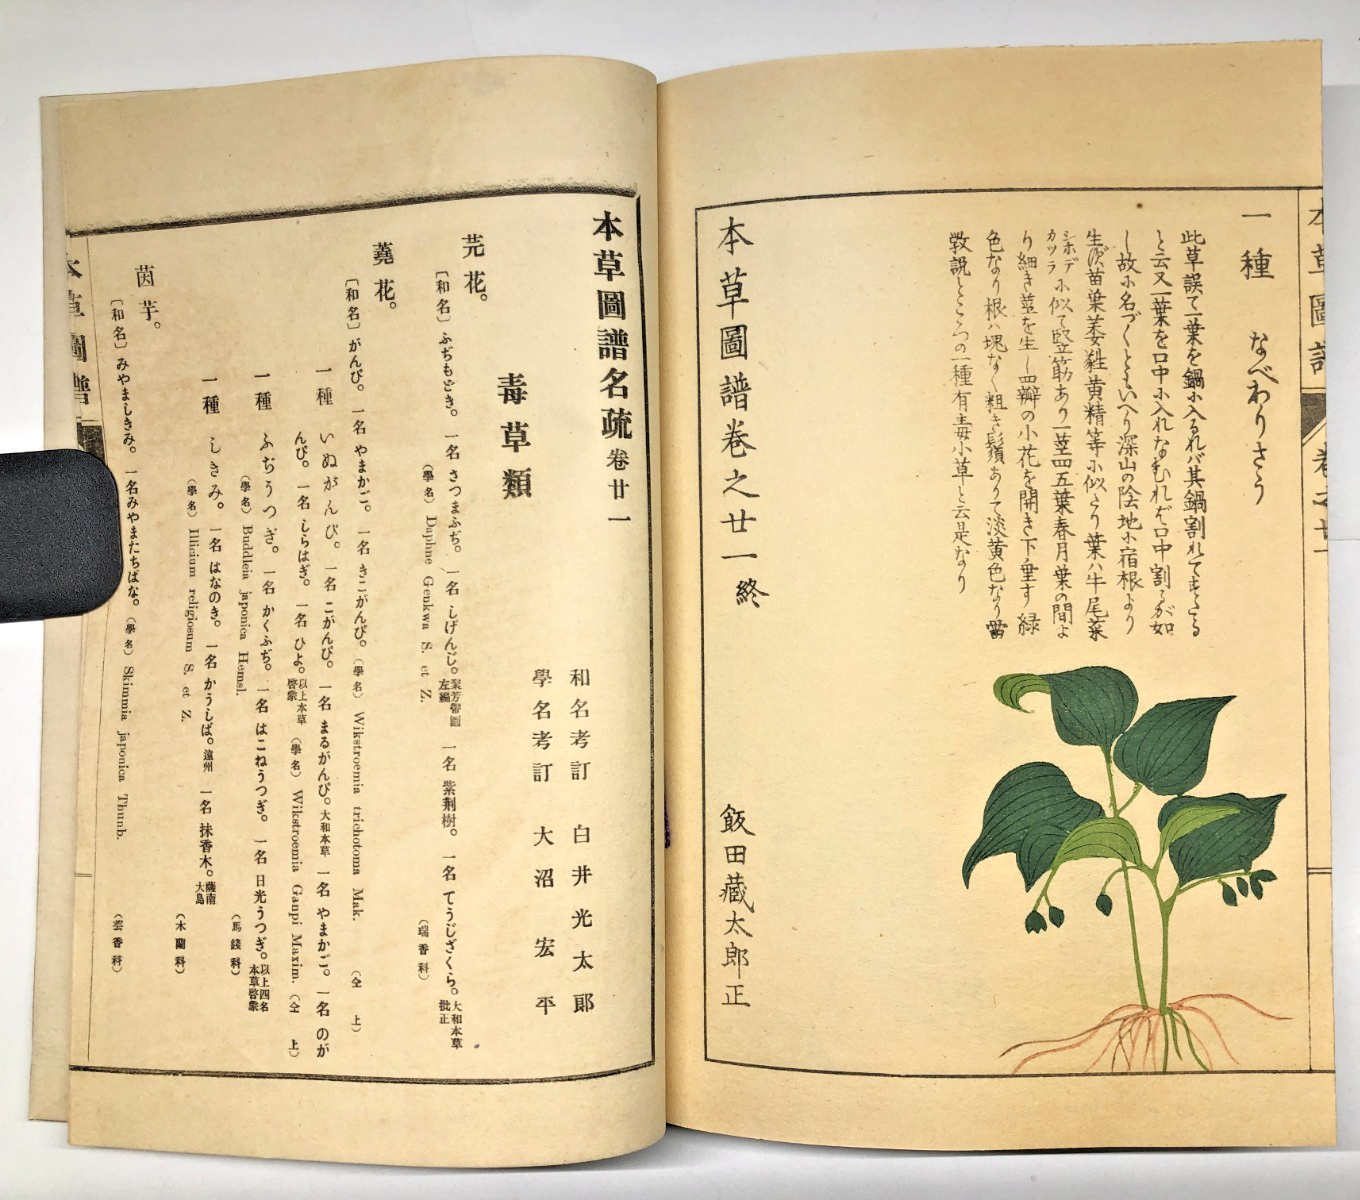 一種 なべわりさう
此草誤て一葉を鍋ホ入るれバ其鍋割れてまたる
と云又一葉を口中ホ入れなむれバ口中割るが如
し故ホ名づくともいへり深山の陰地ホ宿根より
生ず苗葉萎蕤黄精等ホ似たり葉ハ牛尾菜
シホデカツラホ似て竪筋あり一茎四五葉春月葉の間よ
り細き莖を生し四瓣の小花を開き下垂す緑
色なり根ハ塊なく粗き鬚ありて淡黄色なり
敦説ところの一種有毒小草と云是なり
本草圖譜卷之廿一終
飯田藏太郎正
本草圖譜名疏卷廿一
和名考訂 白井光太郎
學名考訂 大沼宏平
毒草類
芫花。
〔和名〕ふぢもどき。一名 さつまふぢ。一名 しげんじ。 一名 紫荆樹。 一名 てうじざくら。大和本草批正
(學名) Daphne Genkwa S. et Z. (瑞香科)
蕘花。
〔和名〕がんぴ。一名 やまかご。一名 きこがんぴ。(學名) Wikstroemia trichotoma Mak. (仝上)
一種 いぬがんぴ。一名 こがんぴ。一名 まるがんぴ。大和本草 一名 やまかご。一名 のが
んぴ。一名 しらはぎ。一名 ひよ。以上本草啓蒙 (學名) Wikstroemia Ganpi Maxim. (仝上)
一種 ふぢうつぎ。一名 かくふぢ。一名 はこねうつぎ。一名 日光うつぎ。以上四名本草啓蒙
(學名) Buddleia japonica Hemsl. (馬錢科)
一種 しきみ。一名 はなのき。一名 かうしば。遠州 一名 抹香木。薩南大島
(學名) Illicium religiosum S. et Z. (木蘭科)
茵芋。
〔和名〕みやましきみ。一名みやまたちばな。(學名) Skimmia japonica Thunb. (芸香科)